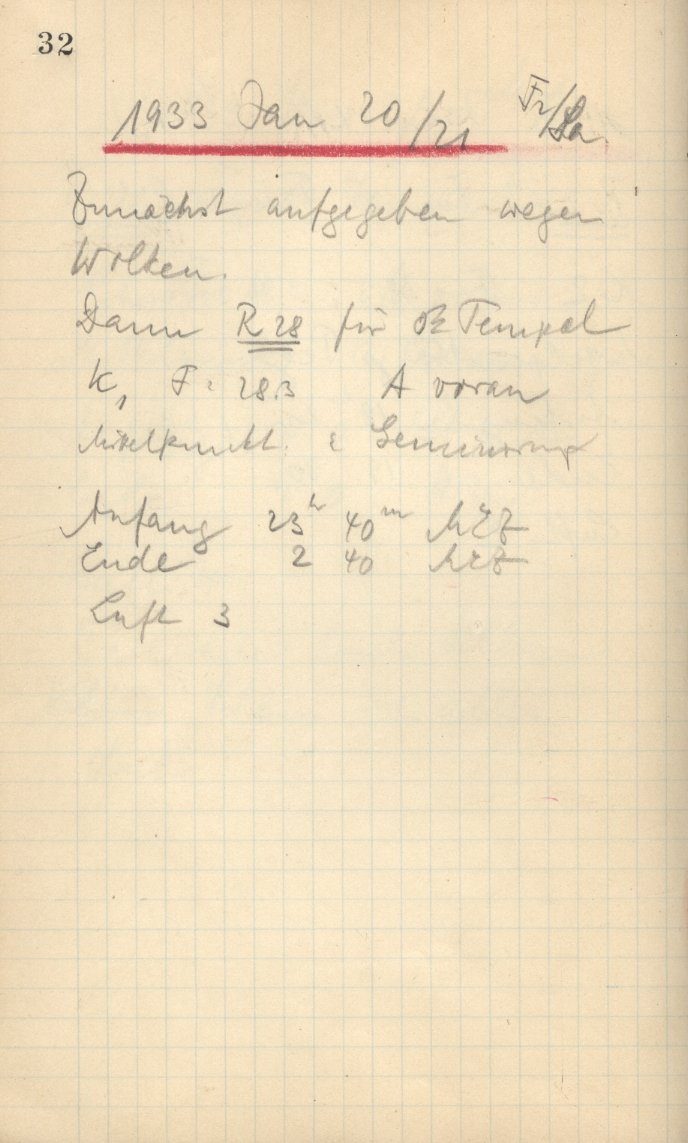 32
1933 Jan 20/21 Fr/Sa
Zunächst aufgegeben wegen
Wolken.
Dann R 28 für Tempel
K, F: 28.3 A voran
Mittelpunkt ε Geminorum
Anfang 23h 40m MEZ
Ende 2 40 MEZ
Luft 3